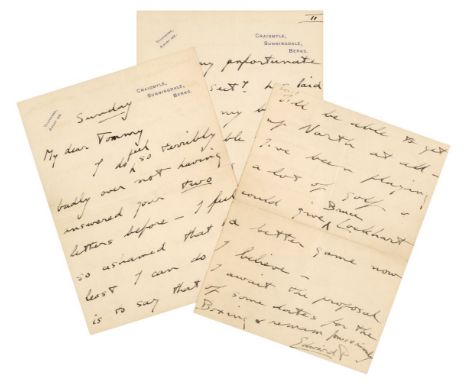 CRAIGMYLE,
SUNNINGDALE,
BERKS.
Sunday
My dear Tommy
I do feel so terribly
badly over not having
answered your two
letters before – I feel
so ashamed that
least I can do
is to say that
II
CRAIGMYLE,
SUNNINGDALE,
BERKS.
my
be able to get
up North at all –
I've been playing
a lot of golf &
could give Bruce Lockhart
a better game now
I believe –
I await the proposed
of some dates for the
Boxing & remain yours sincerely
Edward P